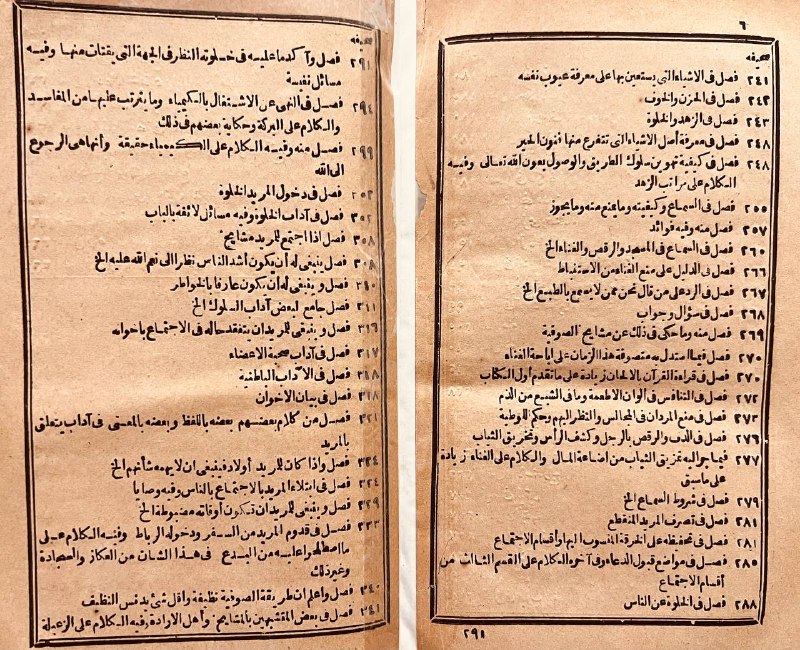 ٦
صحيفه
٢٤١ فصل فى الاشياء التى يستعين بها على معرفة عيوب نفسه
٢٤٢ فصل فى الحزن والخوف
٢٤٣ فصل فى الزهد والخلوة
٢٤٨ فصل فى معرفة أصل الاشياء التى تتفرع منها فنون الخير
٢٤٨ فصل فى كيفية تهوين سلوك الطريق والوصول بعون الله تعالى وفيه
الكلام على مراتب الزهد
٢٥٥ فصل فى السماع وكيفيته وما يمنع منه وما يجوز
٢٥٧ فصل منه وفيه فوائد
٢٦٠ فصل فى السماع فى المسجد والرقص والغناء الخ
٢٦٦ فصل فى الدليل على منع الغناء من الاستنباط
٢٦٧ فصل فى الرد على من قال نحن ممن لا يسمع بالطبع الخ
٢٦٨ فصل فى سؤال وجواب
٢٦٩ فصل منه وما حكى فى ذلك عن مشايخ الصوفية
٢٧٠ فصل فيما استدل به متصوفة هذا الزمان على اباحة الغناء
٢٧٠ فصل فى قراءة القرآن بالالحان زيادة على ما تقدم أول الكتاب
٢٧٢ فصل فى التنافس فى ألوان الاطعمة وما فى الشبع من الذم
٢٧٣ فصل فى منع المردان فى المجالس والنظر اليهم وحكم اللوطية
٢٧٦ فصل فى الدف والرقص بالرجل وكشف الرأس وتخريق الثياب
٢٧٧ فيما جر اليه تمزيق الثياب من اضاعة المال والكلام على الغناء زيادة
على ما سبق
٢٧٩ فصل فى شروط السماع الخ
٢٨١ فصل فى تصرف المريد المنقطع
٢٨١ فصل فى تحفيظه على الخرقة المنسوب اليها وأقسام الاجتماع
٢٨٥ فصل فى مواضع قبول الدعاء وفى آخره الكلام على القسم الثالث من
أقسام الاجتماع
٢٨٨ فصل فى الخلوة عن الناس
٢٩١
صحيفه
٢٩١ فصل وآكد ما عليه فى خلوته النظر فى الجهة التى يقتات منها وفيه
مسائل نفيسة
٢٩٤ فصل فى النهى عن الاشتغال بالكيمياء وما يترتب عليها من المفاسد
والكلام على البركة وحكاية بعضهم فى ذلك
٢٩٩ فصل منه وفيه الكلام على الكيمياء حقيقة وأنها هى الرجوع
الى الله
فصل فى دخول المريد الخلوة
٣٠٢ فصل فى آداب الخلوة وفيه مسائل لائقة بالباب
٣٠٨ فصل اذا اجتمع للمريد مشايخ
٣٠٨ فصل ينبغى له أن يكون أشد الناس نظرا الى نعم الله عليه الخ
٣١٠ فصل وينبغى له أن يكون عارفا بالخواطر
٣١١ فصل جامع لبعض آداب السلوك الخ
٣١٦ فصل وينبغى للمريد ان يتفقد حاله فى الاجتماع باخوانه
٣١٧ فصل فى آداب صحبة الاعضاء
٣١٨ فصل فى الآداب الباطنية
٣١٨ فصل فى بيان الاخوان
٣٢١ فصل من كلام بعضهم بعضه باللفظ وبعضه بالمعنى فى آداب يتعلق
بالمريد
٣٢٤ فصل واذا كان للمريد أولاد فينبغى ان لا يهمه شأنهم الخ
٣٢٤ فصل فى ابتلاء المريد بالاجتماع بالناس وفيه وصايا
٣٢٩ فصل وينبغى للمريد ان تكون أوقاته مضبوطة الخ
٣٣٣ فصل فى قدوم المريد من السفر ودخوله الرباط وفيه الكلام على
ما اصطلحوا عليه من البدع فى هذا الشأن من العكاز والسجادة
وغير ذلك
٣٤٠ فصل واعلم ان طريقة الصوفية نظيفة وأقل شئ يدنس النظيف
٣٤١ فصل فى بعض المتشبهين بالمشايخ وأهل الارادة وفيه الكلام على